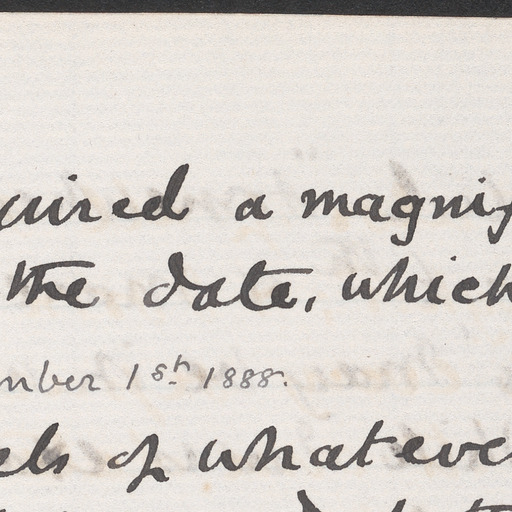 uired a magnif
the date, which
mber 1st 1888.
els of whateve